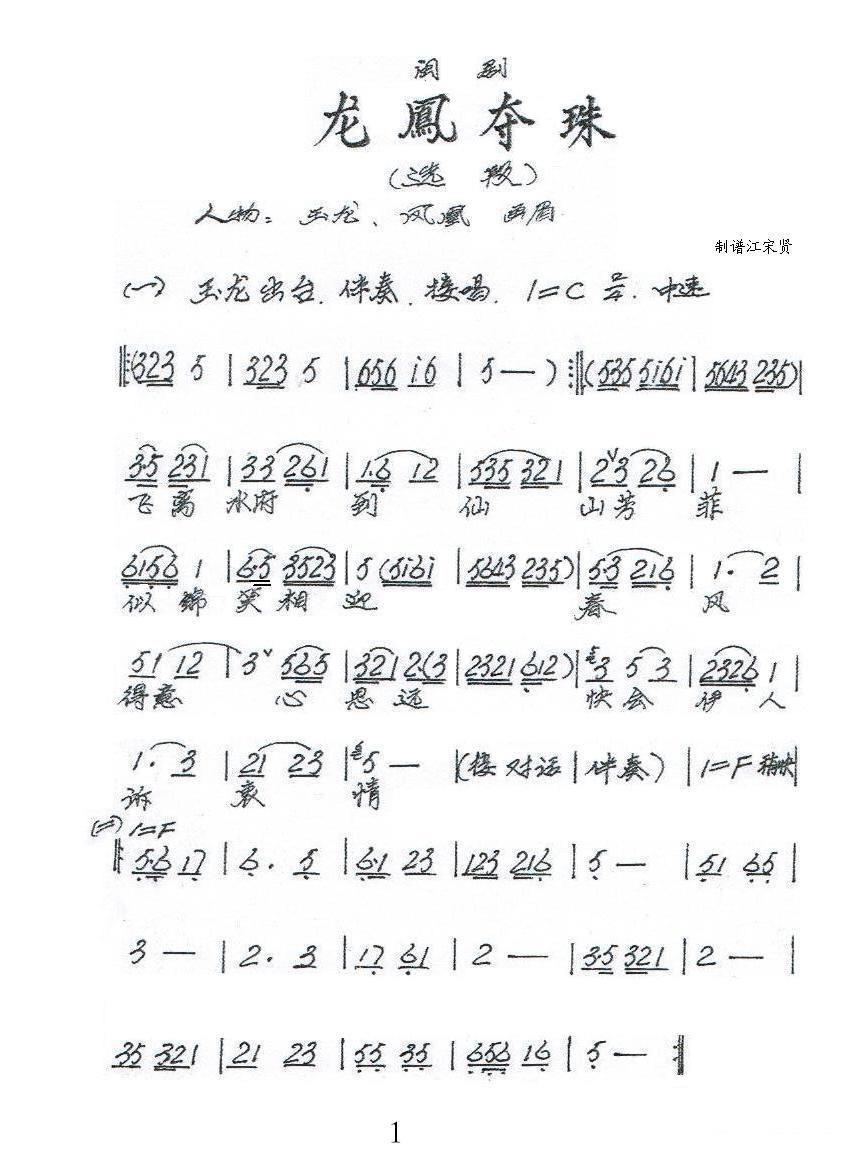 闽剧
龙鳳夺珠
(选段)
人物：玉龙、凤凰 画眉
制谱江宋贤
(一) 玉龙出台.伴奏.接唱. 1=C 2/4.中速
‖:(323 5 | 323 5 | 656 i6 | 5 — ):‖(535 5i6i | 5643 235)|
3·5 231 | 33 261 | 1·6 12 | 535 321 | 2ˇ3 26 | 1 — |
飞离 水府 到 仙 山芳 菲
6156 1 | 6·5 3523 | 5 (5i6i | 5643 235) | 5·3 216 | 1· 2 |
似锦 笑相 迎 春 风
51 12 | 3ˇ 565 | 321 2·(3 | 2321 612) | 3 5 3 | 2326 1 |
得意 心 思 远 快会 伊 人
1· 3 | 21 23 | 5 — | (接对话 | 伴奏) | 1=F 稍快 |
诉 衷 情
(二) 1=F
‖: 5·6 17 | 6· 5 | 6·1 23 | 123 216 | 5 — | 51 65 |
3 — | 2· 3 | 17 61 | 2 — | 3·5 321 | 2 — |
35 321 | 21 23 | 55 35 | 656 16 | 5 — :‖
1